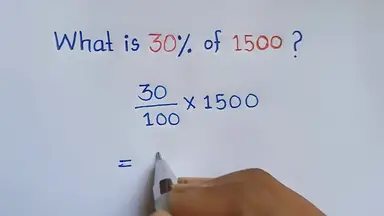 What is 30% of 1500 ?
30/100 × 1500
=